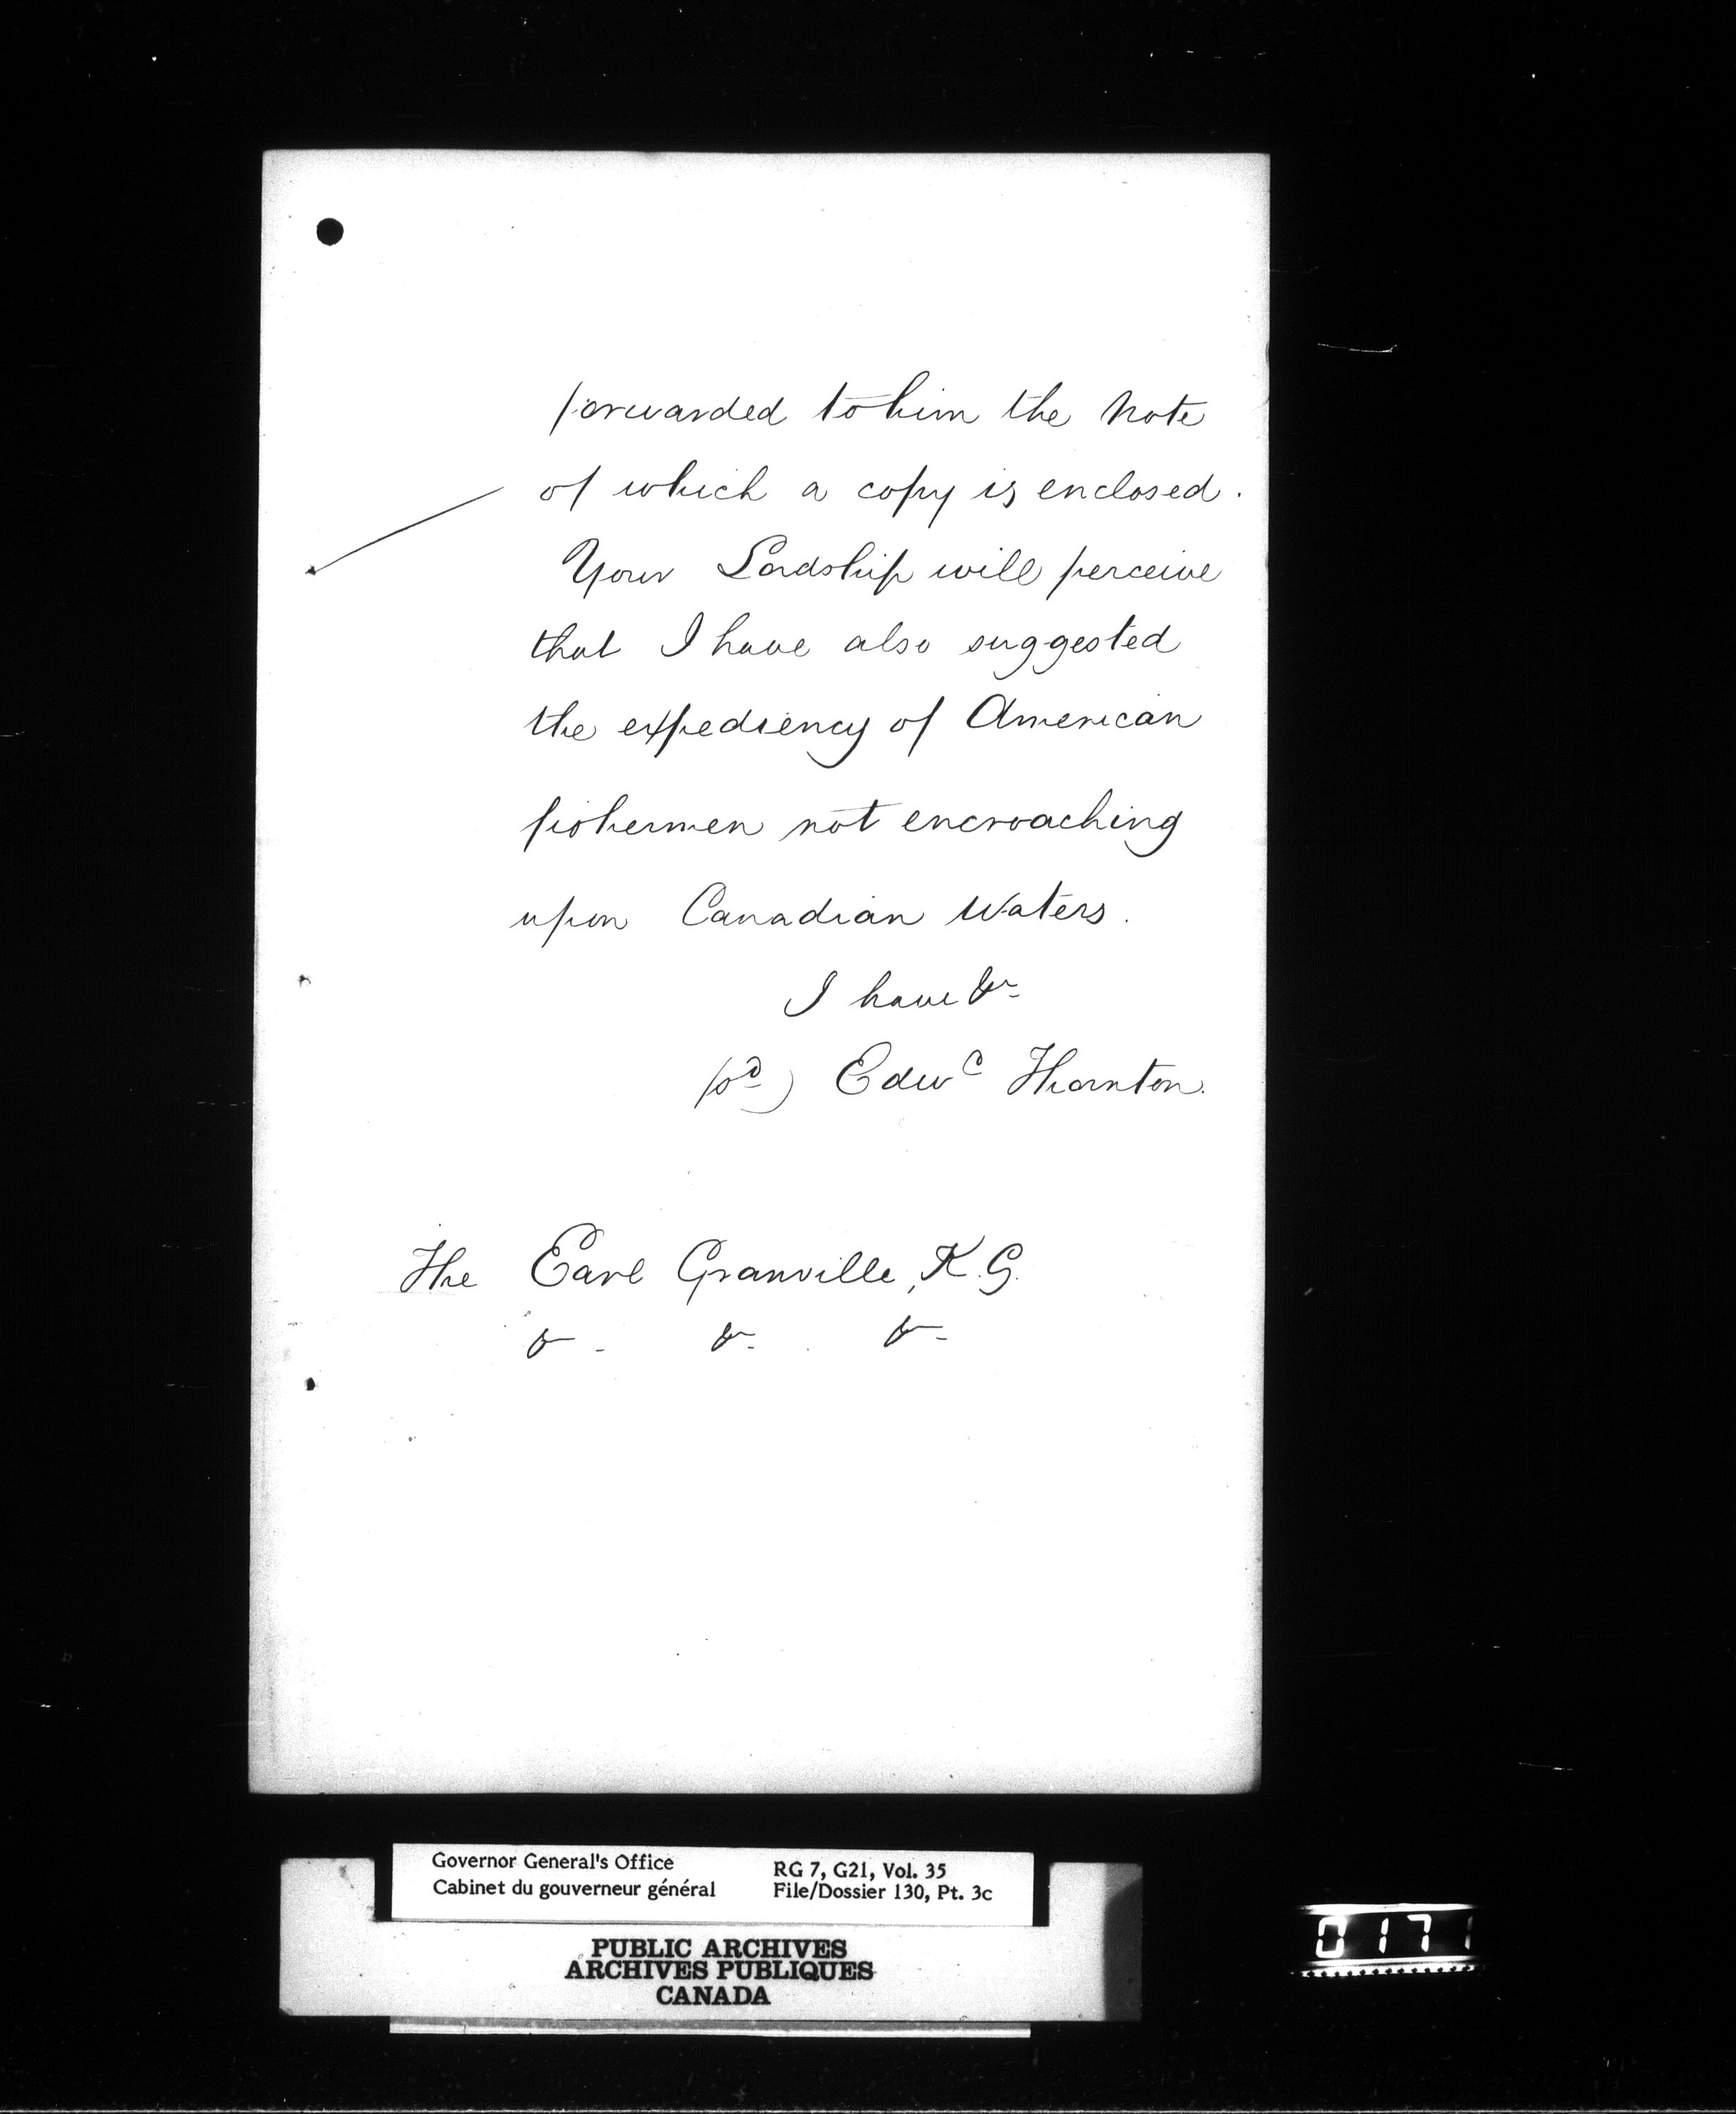 forwarded to him the Note
of which a copy is enclosed.
Your Lordship will perceive
that I have also suggested
the expediency of American
fishermen not encroaching
upon Canadian Waters.
I have &c
(sd) Edwd Thornton.
The Earl Granville, K.G.
&c &c &c
Governor General's Office
Cabinet du gouverneur général
RG 7, G21, Vol. 35
File/Dossier 130, Pt. 3c
PUBLIC ARCHIVES
ARCHIVES PUBLIQUES
CANADA
0171